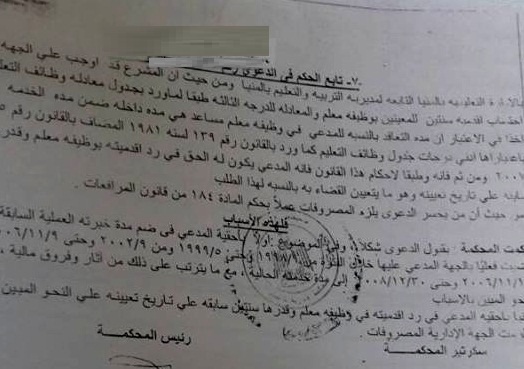 -٧- تابع الحكم في الدعوى
بالإدارة التعليمية بالمنيا التابعه لمديريه التربيه والتعليم بالمنيا ومن حيث ان المشرع قد اوجب علي الجهه
احتساب اقدميه سنتين للمعينين بوظيفه معلم والمعادله للدرجه الثالثه طبقا لماورد بجدول معادله وظائف التعليم
اخذا في الاعتبار ان مده التعاقد بالنسبه للمدعي في وظيفه معلم مساعد هي مده داخله ضمن مده الخدمه
باعتبارها ادني درجات جدول وظائف التعليم كما ورد بالقانون رقم ١٣٩ لسنه ١٩٨١ المضاف بالقانون رقم
٢٠٠٧ ومن ثم فانه وطبقا لاحكام هذا القانون فانه المدعي يكون له الحق في رد اقدميته بوظيفه معلم وقدر
سابقه علي تاريخ تعيينه وهو ما يتعين القضاء به بالنسبه لهذا الطلب
حيث أن من يخسر الدعوى يلزم المصروفات عملاً بحكم المادة ١٨٤ من قانون المرافعات .
فلهذه الأسباب
حكمت المحكمة : بقبول الدعوى شكلاً ، وفي الموضوع : أولا بأحقية المدعي في ضم مدة خبرته العملية السابقة
فعليا بالجهة المدعي عليها خلال وحتى ١٩٩٩/٥ ومن ٢٠٠٢/٩ وحتى ٢٠٠٦/١١/٩
وحتى ٢٠٠٨/١٢/٣٠ إلى مدة خدمته الحالية ، مع ما يترتب على ذلك من آثار وفروق مالية ،
النحو المبين بالاسباب
بأحقيه المدعي في رد اقدميته في وظيفه معلم وقدرها سنتين سابقه علي تاريخ تعيينه علي النحو المبين
الجهة الإدارية المصروفات .
سكرتير المحكمــة
رئيس المحكمة